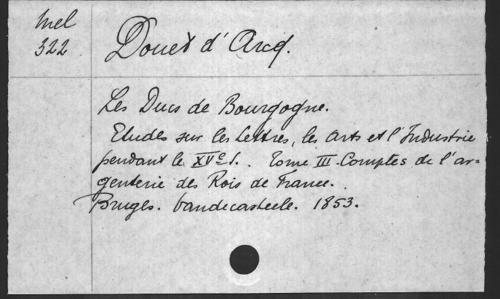 Mel
322
Douet d'Arcq.
Les Ducs de Bourgogne.
Etudes sur les Lettres, les Arts et l'Industrie
pendant le XVe s. Tome III. Comptes de l'ar-
genterie des Rois de France.
Bruges. Vandecasteele. 1853.